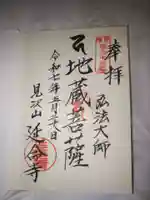 奉拝
弘法大師
地蔵菩薩
令和七年五月三十日
見次山
延命寺